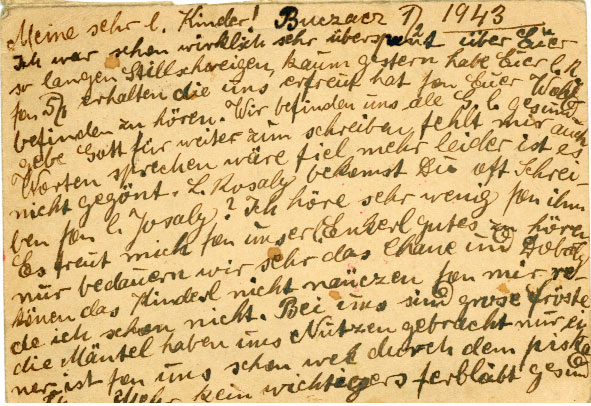 Meine sehr l. Kinder! Buczacz 1943
Ich war schon wirklich sehr überspant über Euer
so langen Stillschweigen, kaum gestern habe Eier l. K.
fon 5/1 erhalten die uns erfreut hat fon Euer Wohl
befinden zu hören. Wir befinden uns ale G. l. gesund
gebe Gott für weiter zum schreiben fehlt mir auch
Worten sprechen wäre fiel mehr leider ist es
nicht gegönt. L. Rosaly bekomst Du oft Schrei-
ben fon l. Josaly? Ich höre sehr wenig fon ihm
Es freut mich fon unser Enkerl gutes zu hören
nur bedauern wir sehr das Chane und
könen das Kinderl nicht fon mir re
de ich schon nicht. Bei uns sind grose fröste
die Mäntel haben uns Nutzen gebracht nur ei
ner ist fon uns schon wek durch dem
mehr kein wichtigers ferbläbt gesund